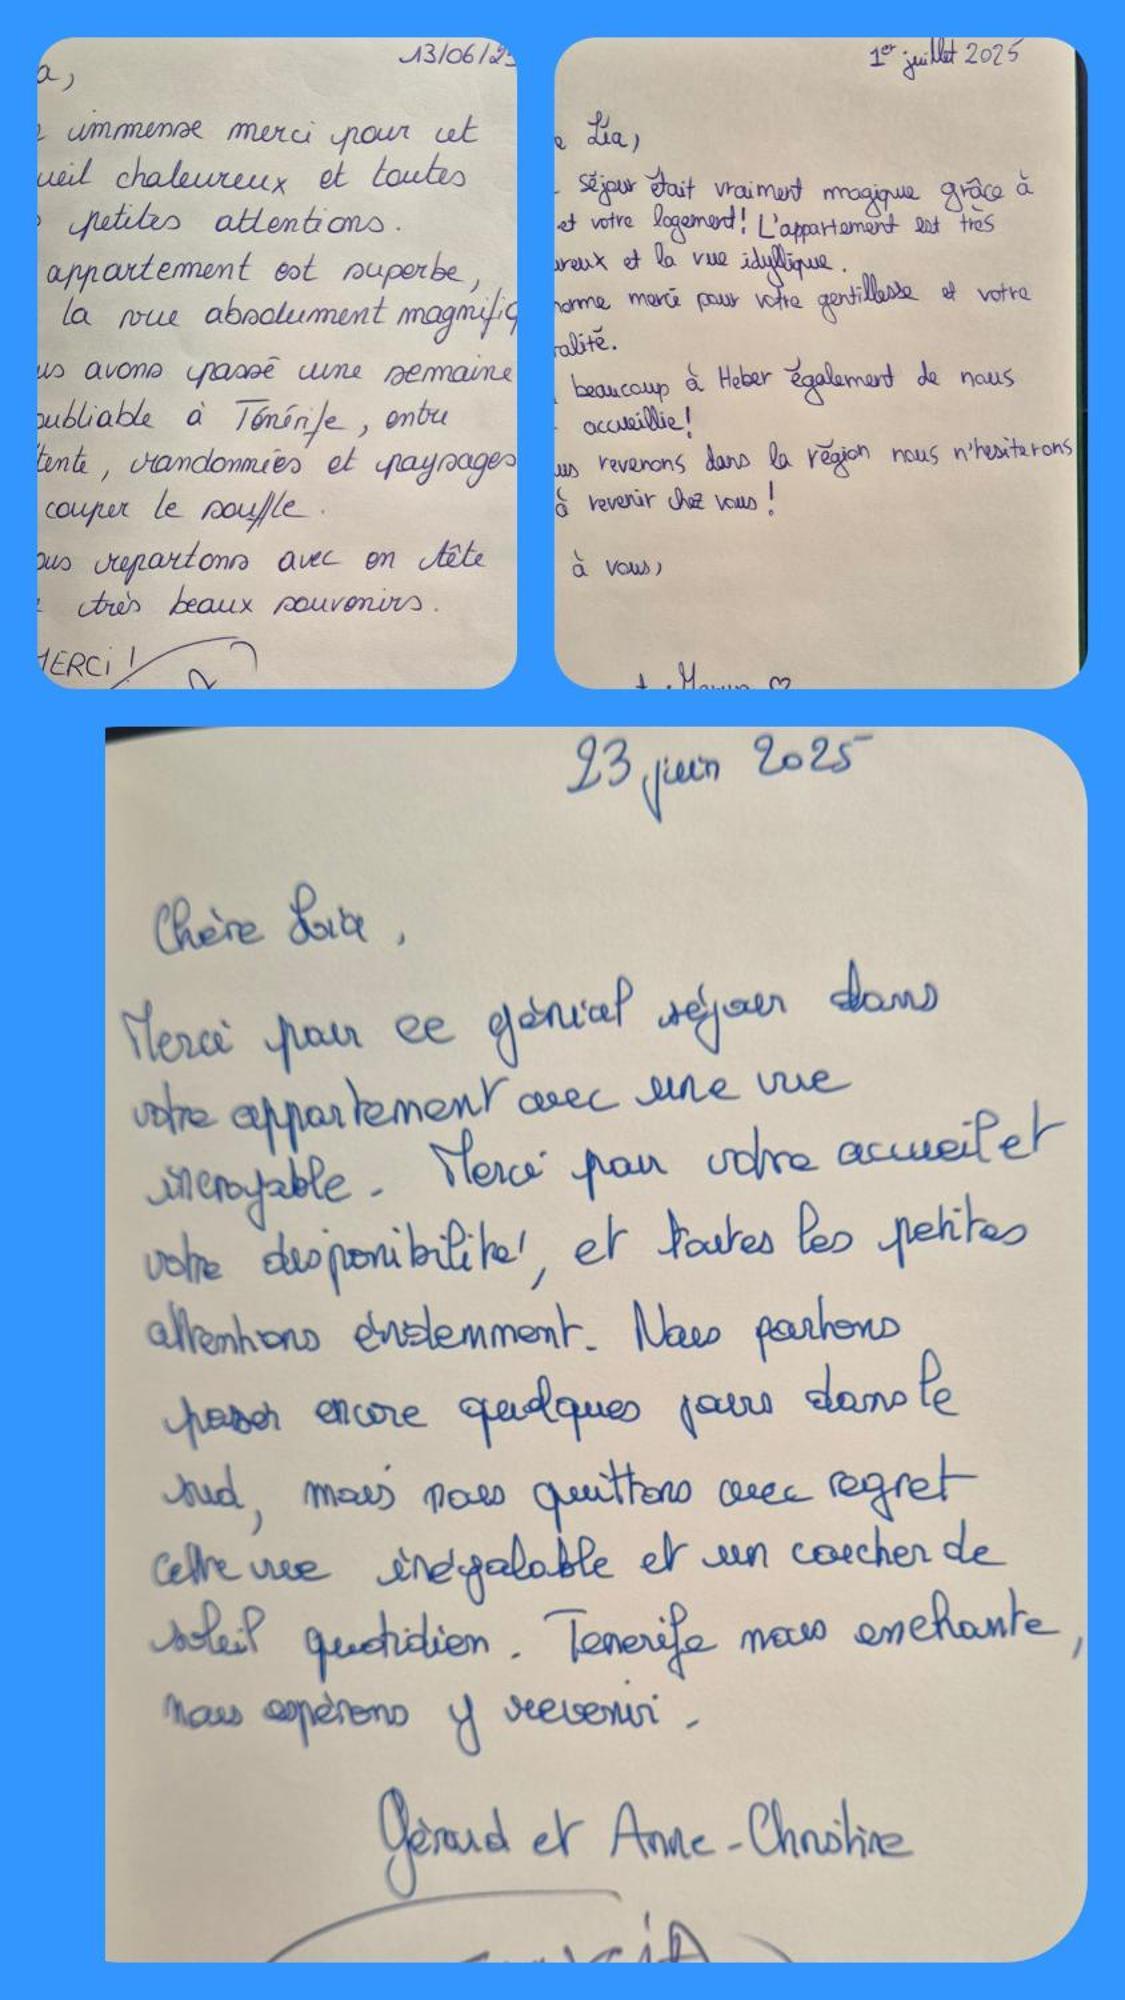 13/06/25
a,
immense merci pour cet
ueil chaleureux et toutes
petites attentions.
appartement est superbe,
la vue absolument magnifiq
us avons passé une semaine
oubliable à Ténérife, entre
tente, randonnées et paysages
couper le souffle.
ous repartons avec en tête
très beaux souvenirs.
MERCI !
1er juillet 2025
e Léa,
séjour était vraiment magique grâce à
et votre logement! L'appartement est très
ureux et la vue idyllique.
norme merci pour votre gentillesse et votre
alité.
beaucoup à Heber également de nous
accueillie!
us revenons dans la région nous n'hesiterons
à revenir chez vous !
à vous,
23 juin 2025
Chère
Merci pour ce génial séjour dans
votre appartement avec une vue
incroyable. Merci pour votre accueil et
votre disponibilité, et toutes les petites
attentions évidemment. Nous partons
passer encore quelques jours dans le
sud, mais nous quittons avec regret
cette vue inégalable et un coucher de
soleil quotidien. Tenerife nous enchante,
nous espérons y revenir.
Gérard et Anne-Christine